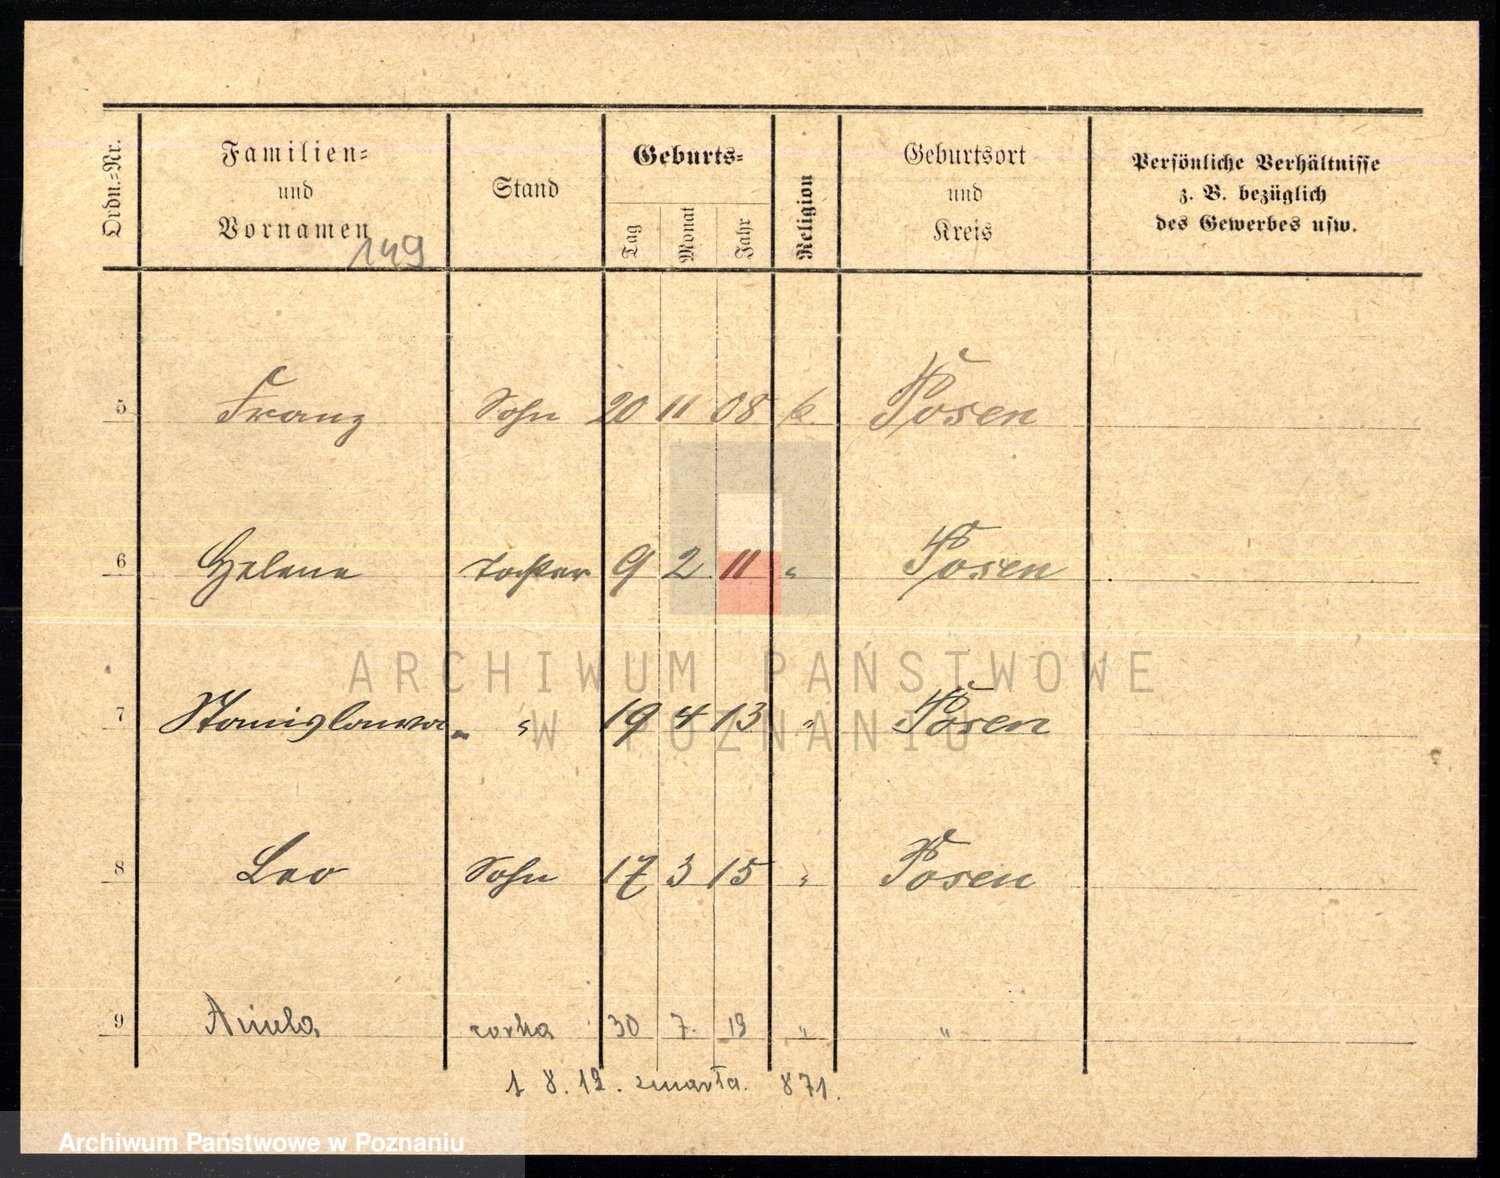 Ordn.=Nr.
Familien=
und
Vornamen
149
Stand
Geburts=
Tag
Monat
Jahr
Religion
Geburtsort
und
Kreis
Persönliche Verhältnisse
z. B. bezüglich
des Gewerbes usw.
5 Franz Sohn 20 11 08 k. Posen
6 Helene Tochter 9 2 11 " Posen
ARCHIWUM PAŃSTWOWE
7 Stanislawa " 19 4 13 " Posen
W POZNANIU
8 Leo Sohn 17 3 15 " Posen
9 Aniela corka 30 7. 19 " "
1 8. 19. zmarła. 871.
Archiwum Państwowe w Poznaniu